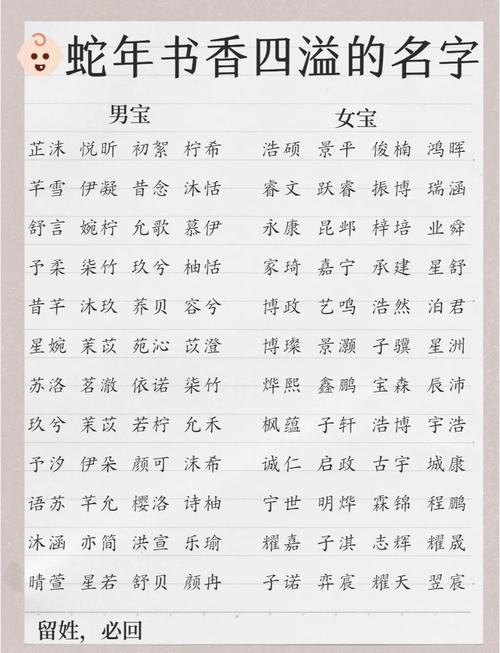 蛇年书香四溢的名字
男宝 女宝
芷沫 悦昕 初絮 柠希 浩硕 景平 俊楠 鸿晖
芊雪 伊凝 昔念 沐恬 睿文 跃睿 振博 瑞涵
舒言 婉柠 允歌 慕伊 永康 昆邺 梓培 业舜
予柔 柒竹 玖兮 柚恬 家琦 嘉宁 承建 星舒
昔芊 沐玖 荞贝 容兮 博政 艺鸣 浩然 泊君
星婉 茉苡 苑沁 苡澄 博璨 景灏 子骥 星洲
苏洛 茗澈 依诺 柒竹 烨熙 鑫鹏 宝森 辰沛
玖兮 茉苡 若柠 允禾 枫蕴 子轩 浩博 宇浩
予汐 伊朵 颜可 沫希 诚仁 启政 古宇 城康
语苏 芊允 樱洛 诗柚 宁世 明烨 霖锦 程鹏
沐涵 亦简 洪宣 乐瑜 耀嘉 子淇 志辉 耀晟
晴萱 星若 舒贝 颜冉 子诺 弈宸 耀天 翌宸
留姓，必回